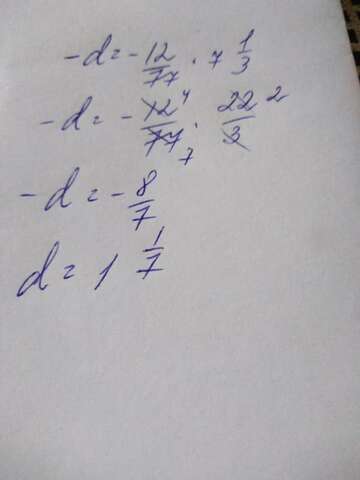 -d = - 12/77 · 7 1/3
-d = - 12 4/77 7 · 22 2/3
-d = - 8/7
d = 1 1/7